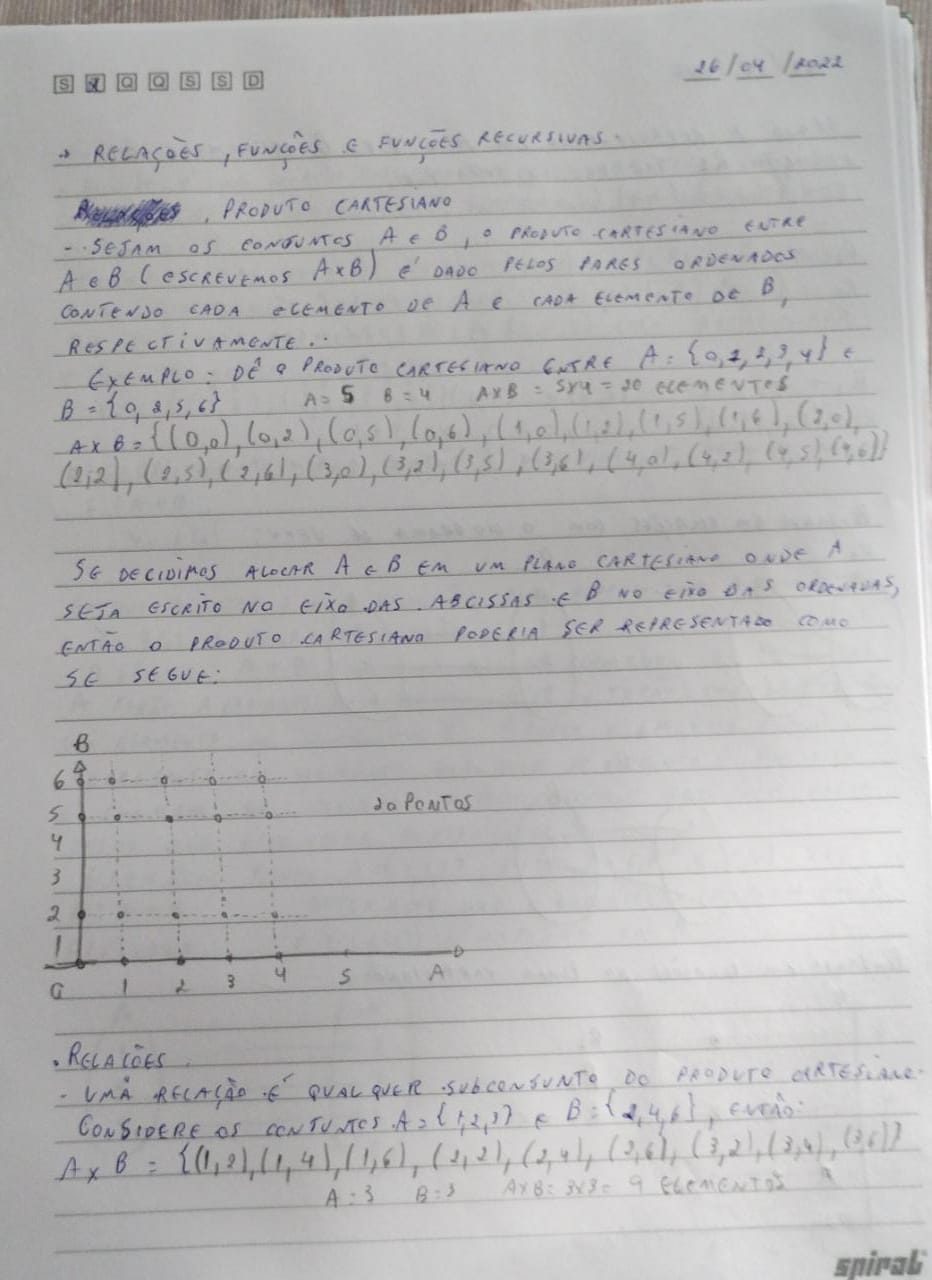 S X Q Q S S D
26/04/2022
→ RELAÇÕES, FUNÇÕES E FUNÇÕES RECURSIVAS.
. PRODUTO CARTESIANO
-. SEJAM OS CONJUNTOS A E B, O PRODUTO CARTESIANO ENTRE
A E B (ESCREVEMOS AxB) É DADO PELOS PARES ORDENADOS
CONTENDO CADA ELEMENTO DE A E CADA ELEMENTO DE B,
RESPECTIVAMENTE..
EXEMPLO: DÊ O PRODUTO CARTESIANO ENTRE A = {0,1,2,3,4} E
B = {0,2,5,6} A = 5 B = 4 AxB = 5x4 = 20 ELEMENTOS
A x B = {(0,0), (0,2), (0,5), (0,6), (1,0), (1,2), (1,5), (1,6), (2,0),
(2,2), (2,5), (2,6), (3,0), (3,2), (3,5), (3,6), (4,0), (4,2), (4,5) (4,6)}
SE DECIDIMOS ALOCAR A E B EM UM PLANO CARTESIANO ONDE A
SEJA ESCRITO NO EIXO DAS ABCISSAS E B NO EIXO DAS ORDENADAS,
ENTÃO O PRODUTO CARTESIANO PODERIA SER REPRESENTADO COMO
SE SEGUE:
B
6
5 20 PONTOS
4
3
2
1
0 1 2 3 4 5 A
. RELACÕES
- UMA RELAÇÃO É QUALQUER SUBCONJUNTO DO PRODUTO CARTESIANO.
CONSIDERE OS CONJUNTOS A = {1,2,3} E B = {2,4,6}, ENTÃO:
A x B = {(1,2), (1,4), (1,6), (2,2), (2,4), (2,6), (3,2), (3,4), (3,6)}
A = 3 B = 3 AxB = 3x3 = 9 ELEMENTOS
spiral